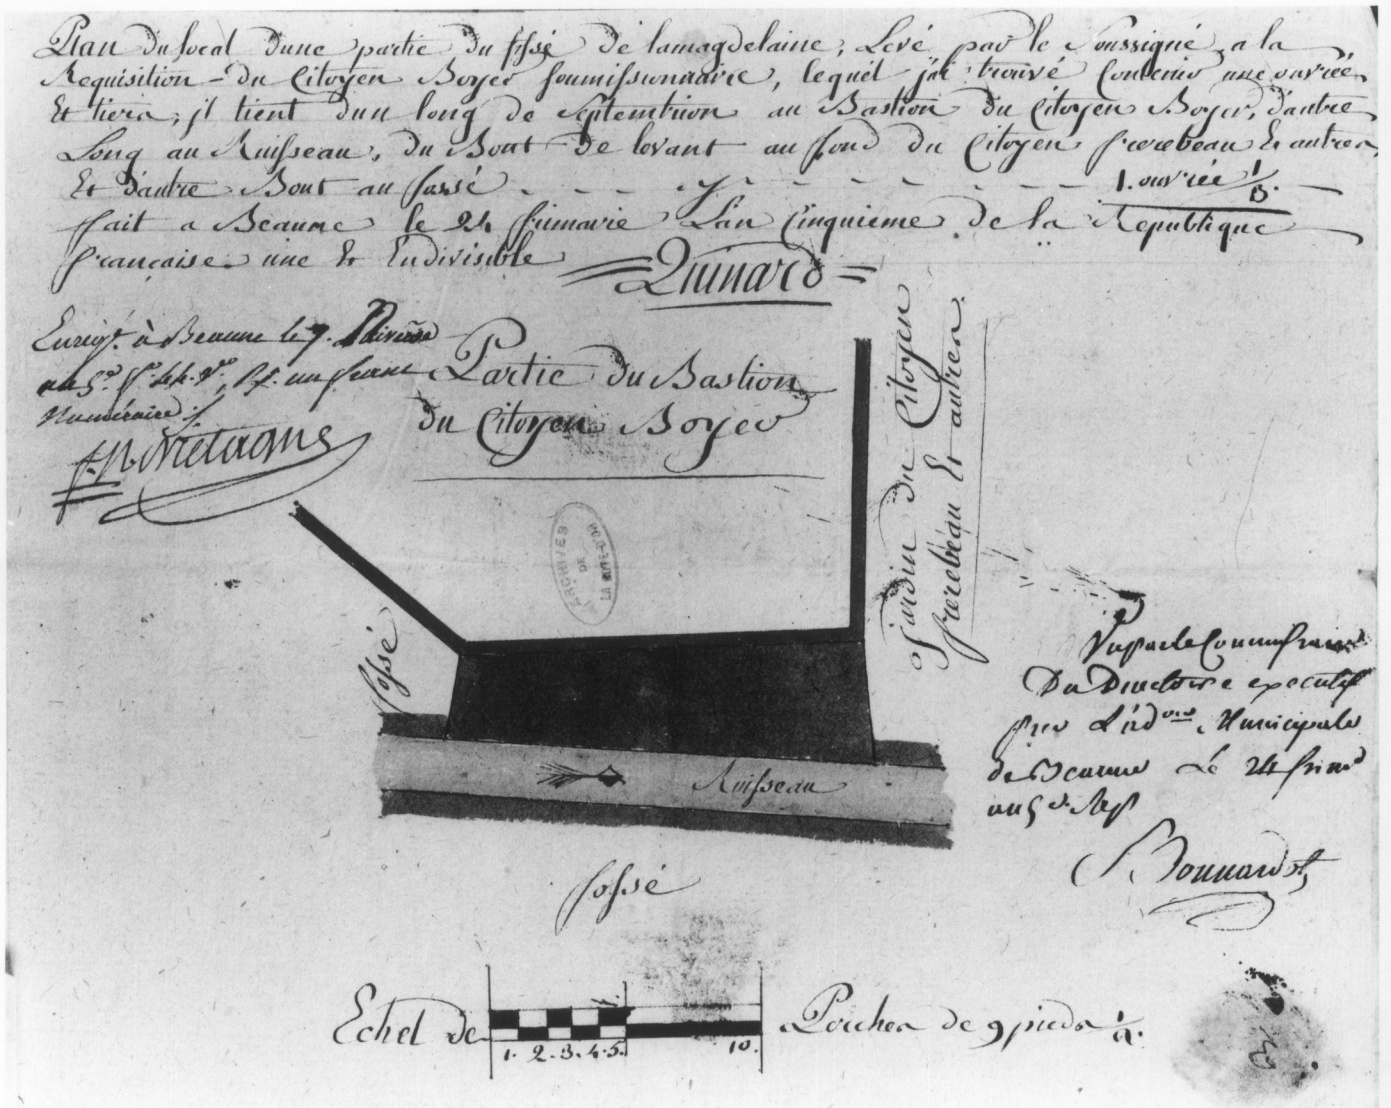 Plan du local dune partie du fossé de lamagdelaine, Levé par le Soussigné, a la
Requisition du Citoyen Boyer soumissionnaire, lequel j'ai trouvé Contenir une ouvrée
Et tiers, jl tient d'un long de Septentrion au Bastion du Citoyen Boyer, d'autre
Long au Ruisseau, du Bout de levant au fond du Citoyen frerebeau Et autres,
Et d'autre Bout au fossé 1. ouvrée 1/3.
fait a Beaune le 24 frimaire L'an Cinquieme de la Republique
française une Et Endivisible
Quinard
Enregt. à Beaune le 7. Nivôse
an 5e. fo 44. vo, Rs. un franc
Numéraire
Partie du Bastion
du Citoyen Boyer
Jardin du Citoyen
frerebeau Et autres
ARCHIVES
DE
LA COTE-D'OR
fossé
Vu par le Commissaire
Du Directoire executif
près L'ad Municipale
de Beaune Le 24 frim
an 5 e. Rep
Bonnardot
Ruisseau
fossé
Echel de
1. 2. 3. 4. 5. 10.
Perches de 9 pieds 1/2.